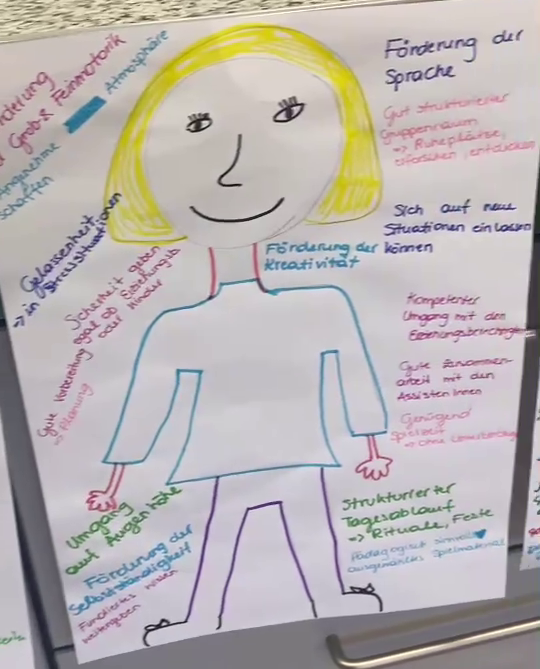 Förderung der
Sprache
Gut strukturierter
Gruppenraum
=> Ruheplätze,
erforschen, entdecken
Sich auf neue
Situationen einlassen
können
Förderung der
Kreativität
Kompetenter
Umgang mit den
Erziehungsberechtigten
Gute Zusammen-
arbeit mit den
AssistenInnen
Genügend
Spielzeit
=> ohne
Strukturierter
Tagesablauf
=> Rituale, Feste
Pädagogisch sinnvoll
ausgewähltes Spielmaterial
Grob & Feinmotorik
Angenehme Atmosphäre
schaffen
Gelassenheit
=> in Stresssituationen
Sicherheit geben
egal ob Erziehungsb.
oder Kinder
Gute Vorbereitung
=> Planung
Umgang
auf Augenhöhe
Förderung der
Selbstständigkeit
Fundiertes Wissen
weitergeben